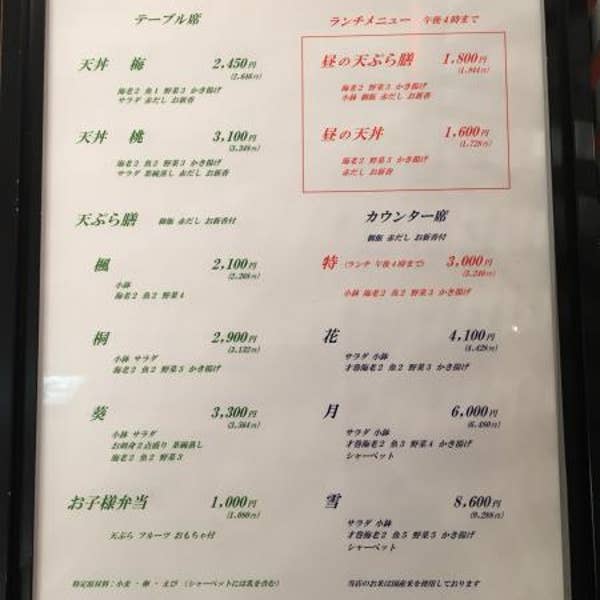 テーブル席
天丼 梅 2,450円
(2,646円)
海老2 魚1 野菜3 かき揚げ
サラダ 赤だし お新香
天丼 桃 3,100円
(3,348円)
海老2 魚2 野菜3 かき揚げ
サラダ 茶碗蒸し 赤だし お新香
天ぷら膳 御飯 赤だし お新香付
楓 2,100円
(2,268円)
小鉢
海老2 魚2 野菜4
桐 2,900円
(3,132円)
小鉢 サラダ
海老2 魚2 野菜5 かき揚げ
葵 3,300円
(3,564円)
小鉢 サラダ
お刺身2点盛り 茶碗蒸し
海老2 魚2 野菜3
お子様弁当 1,000円
(1,080円)
天ぷら フルーツ おもちゃ付
特定原材料:小麦・卵・えび (シャーベットには乳を含む)
ランチメニュー 午後4時まで
昼の天ぷら膳 1,800円
(1,944円)
海老2 野菜3 かき揚げ
小鉢 御飯 赤だし お新香
昼の天丼 1,600円
(1,728円)
海老2 野菜3 かき揚げ
赤だし お新香
カウンター席
御飯 赤だし お新香付
特 (ランチ 午後4時まで) 3,000円
(3,240円)
小鉢 海老2 魚2 野菜3 かき揚げ
花 4,100円
(4,428円)
サラダ 小鉢
才巻海老2 魚2 野菜3 かき揚げ
月 6,000円
(6,480円)
サラダ 小鉢
才巻海老2 魚3 野菜4 かき揚げ
シャーベット
雪 8,600円
(9,288円)
サラダ 小鉢
才巻海老2 魚5 野菜5 かき揚げ
シャーベット
当店のお米は国産米を使用しております